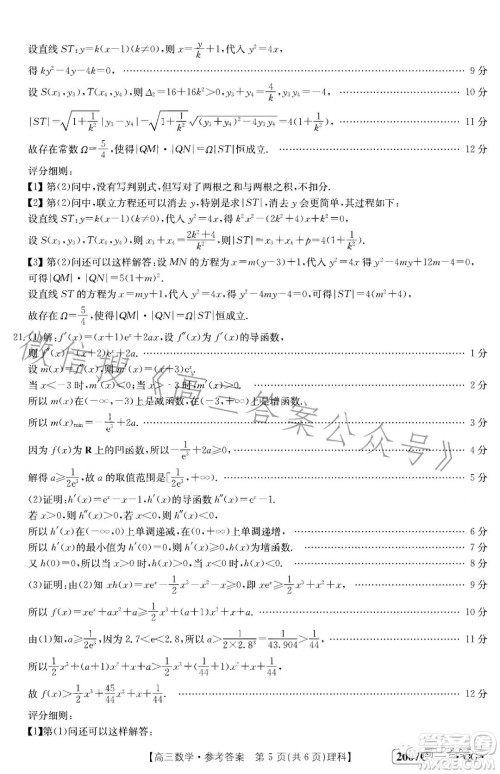 设直线 ST:y=k(x-1)(k≠0),则 x=y/k+1,代入 y²=4x,
得 ky²-4y-4k=0. 9 分
设 S(x₃,y₃),T(x₄,y₄),则 Δ₂=16+16k²>0,y₃+y₄=4/k,y₃y₄=-4,
|ST|=√(1+1/k²)|y₃-y₄|=√(1+1/k²)√((y₃+y₄)²-4y₃y₄)=4(1+1/k²), 11 分
故存在常数 Ω=5/4,使得|QM|·|QN|=Ω|ST|恒成立. 12 分
评分细则:
【1】第(2)问中,没有写判别式,但写对了两根之和与两根之积,不扣分.
【2】第(2)问中,联立方程还可以消去 y,特别求|ST|时,消去 y 会更简单,其过程如下:
设直线 ST 的方程为 y=k(x-1)(k≠0),代入 y²=4x,得 k²x²-(2k²+4)x+k²=0.
设 S(x₃,y₃),T(x₄,y₄),则 x₃+x₄=(2k²+4)/k²,所以|ST|=x₃+x₄+2=4(1+1/k²).
【3】第(2)问还可以这样解答:设 MN 的方程为 x=m(y-3)+1,代入 y²=4x,得 y²-4my+12m-4=0,
可得|QM|·|QN|=5(1+m²).
设直线 ST 的方程为 x=my+1,代入 y²=4x,得 y²-4my-4=0,可得|ST|=4(1+m²).
故存在 Ω=5/4,使得|QM|·|QN|=Ω|ST|恒成立.
21.(1)解:f′(x)=(x+1)eˣ+2ax,设 f″(x)为 f′(x)的导函数,
则 f″(x)=(x+2)eˣ+2a. 1 分
设 m(x)=f″(x),则 m′(x)=(x+3)eˣ.
当 x<-3 时,m′(x)<0;当 x>-3 时,m′(x)>0. 2 分
所以 m(x)min=m(-3)=-1/e³+2a. 3 分
因为 f(x)为 R 上的凹函数,所以-1/e³+2a≥0, 4 分
解得 a≥1/(2e³),故 a 的取值范围是[1/(2e³),+∞). 5 分
(2)证明:h′(x)=eˣ-x-1,设 h″(x)为 h′(x)的导函数,则 h″(x)=eˣ-1.
若 x>0,则 h″(x)>0;若 x<0,则 h″(x)<0.
所以 h′(x)在(-∞,0)上单调递减,在(0,+∞)上单调递增, 6 分
所以 h′(x)的最小值为 h′(0)=0,则 h′(x)≥0,h(x)为增函数. 7 分
又 h(0)=0,所以当 x>0 时,h(x)>0;当 x<0 时,h(x)<0. 8 分
(3)证明:由(2)知 xh(x)=xeˣ-1/2x³-x²-x≥0,即 xeˣ≥1/2x³+x²+x,
所以 f(x)=xeˣ+ax²+a≥1/2x³+(a+1)x²+x+a. 10 分
由(1)知,a≥1/(2e³),又因为 2.7<e<2.8,所以 a>1/(2×2.8³)=1/43.904>1/44, 11 分
所以 1/2x³+(a+1)x²+x+a>1/2x³+(1/44+1)x²+x+1/44,
故 f(x)>1/2x³+45/44x²+x+1/44. 12 分
评分细则:
【1】第(1)问还可以这样解答:
【高三数学·参考答案 第 5 页(共 6 页)理科】
微信搜《高三答案公众号》